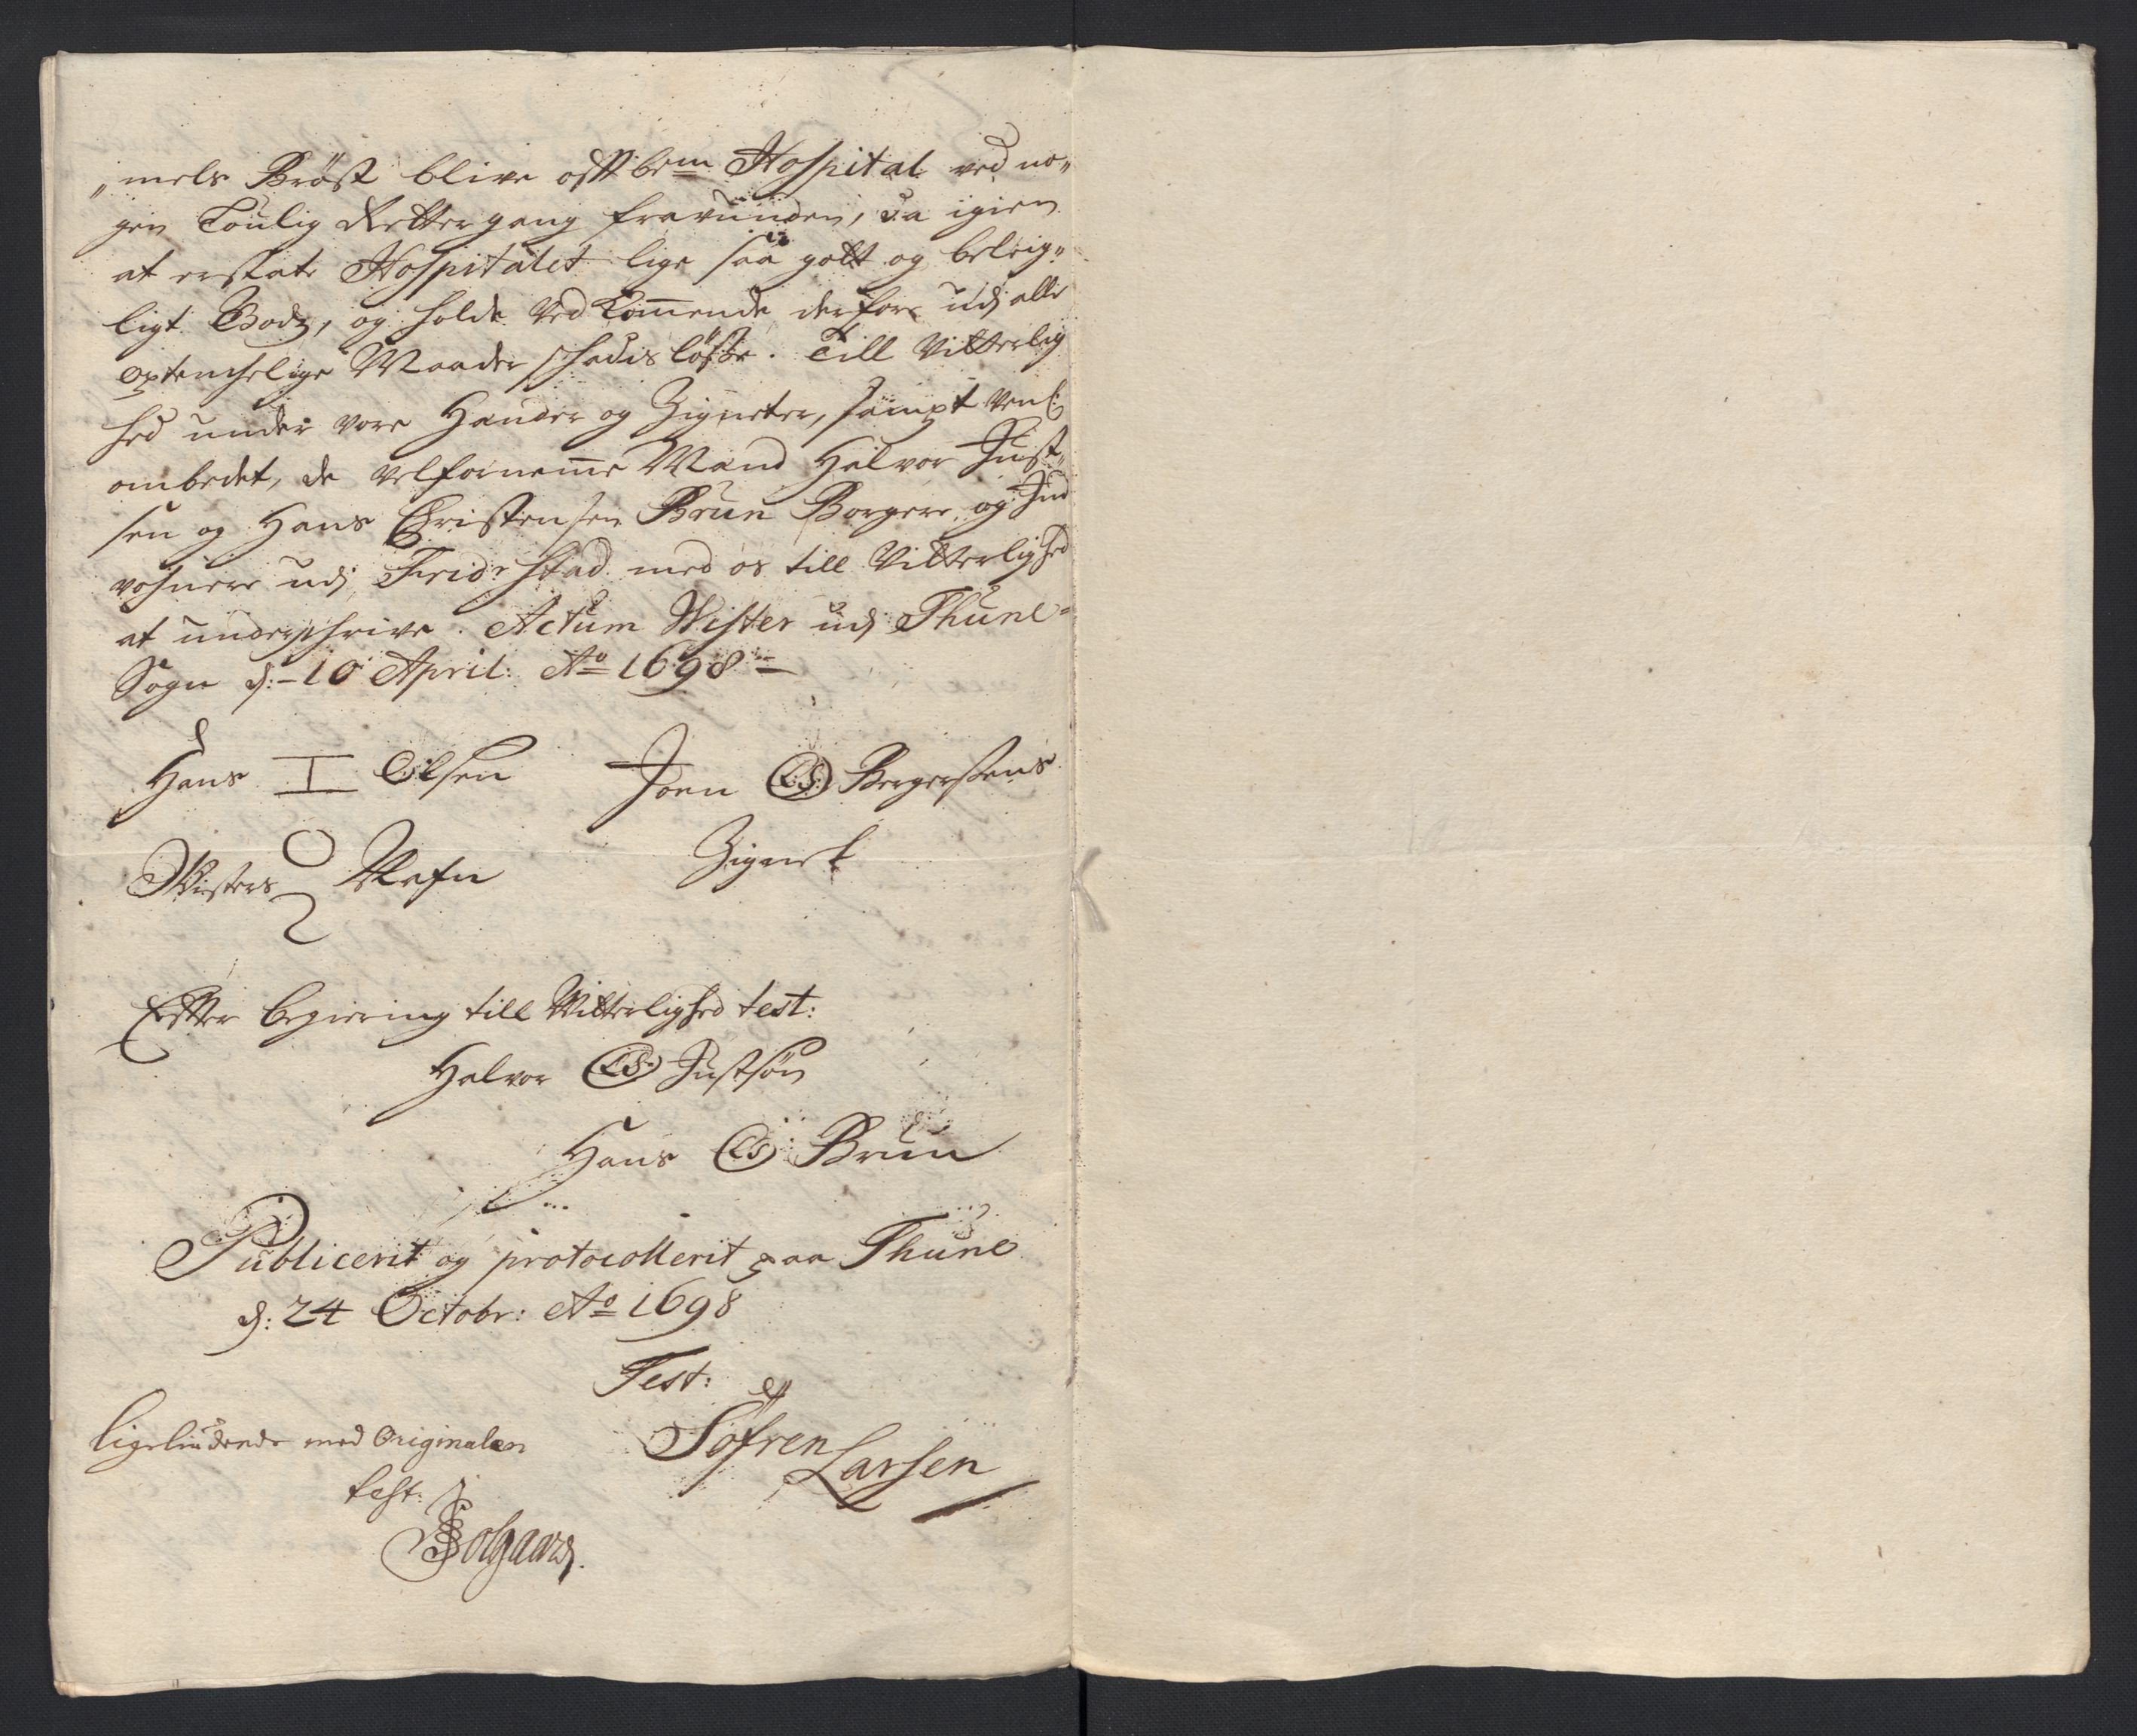 „mels Bröst blive offtbem Hospital ved no„
gen Loulig Rettergang fravunden, da igien
at erstate Hospitalet lige saa gott og beleig„
ligt Godz, og holde Ved Kommende derfore udj alle
optenchelige Maader schadisløsse. Till Vitterlig
hed under vore Hænder og Zigneter, sampt venl:
ombedet, de velfornemme Mænd Halvor Just„
sen og Hans Christensen Brun Borgere og Ind
vohnere udj Fridrstad med os till Vitterlighed
at underschrive. Actum Wister udj Thune
Sogn d: 10 April: Ao 1698
Hans I Olsen Joen LS Bergersens
Wisters Nafn Zignet
Effter begiering till Vitterlighed test:
Halvor LS. Justsøn
Hans LS Brun
Publicerit og protocollerit paa Thune
d: 24 Octobr: Ao 1698
Test:
Søfren
Larsen
ligeliudende med Originalen
test: